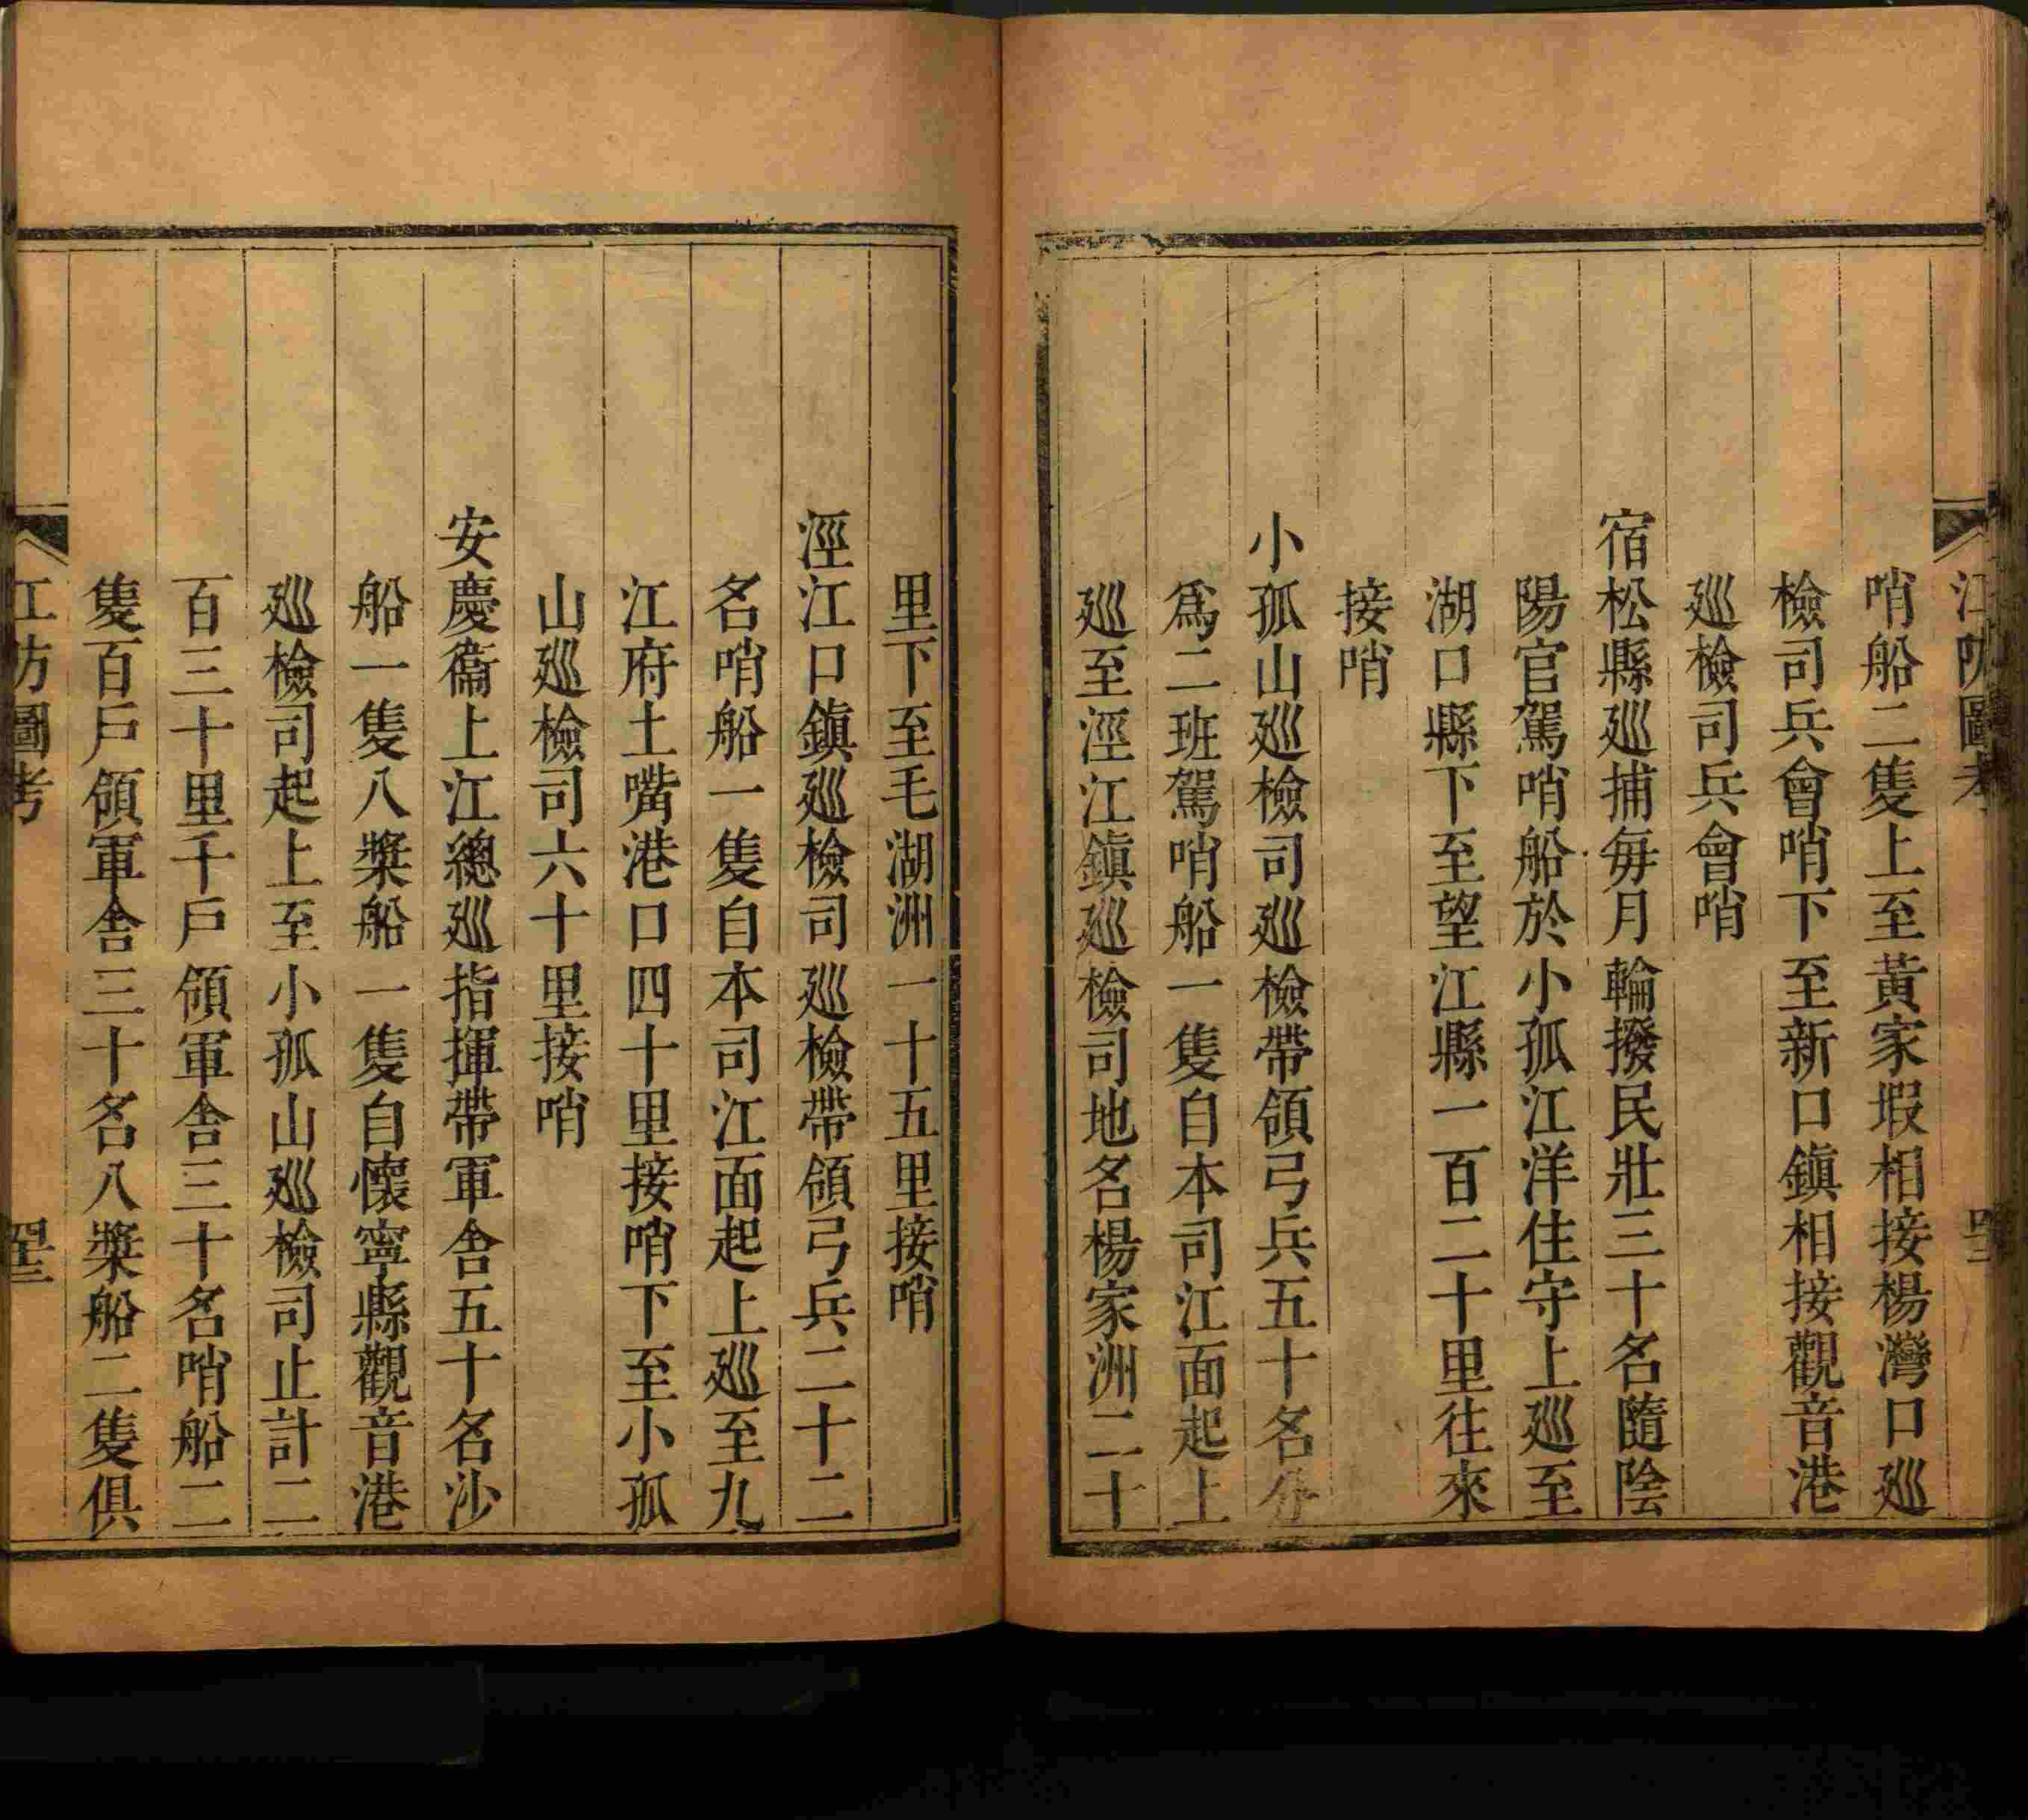 江防圖考
哨船二隻上至黃家瑕相接楊灣口巡
檢司兵會哨下至新口鎭相接觀音港
巡檢司兵會哨
宿松縣巡捕每月輪撥民壯三十名隨隂
陽官駕哨船於小孤江洋住守上巡至
湖口縣下至望江縣一百二十里往來
接哨
小孤山巡檢司巡檢帶領弓兵五十名分
爲二班駕哨船一隻自本司江面起上
巡至涇江鎭巡檢司地名楊家洲二十
里下至毛湖洲一十五里接哨
涇江口鎭巡檢司巡檢帶領弓兵二十二
名哨船一隻自本司江面起上巡至九
江府土嘴港口四十里接哨下至小孤
山巡檢司六十里接哨
安慶衞上江總巡指揮帶軍舍五十名沙
船一隻八槳船一隻自懷寧縣觀音港
巡檢司起上至小孤山巡檢司止計二
百三十里千戶領軍舍三十名哨船二
隻百戶領軍舍三十名八槳船二隻俱
江防圖考